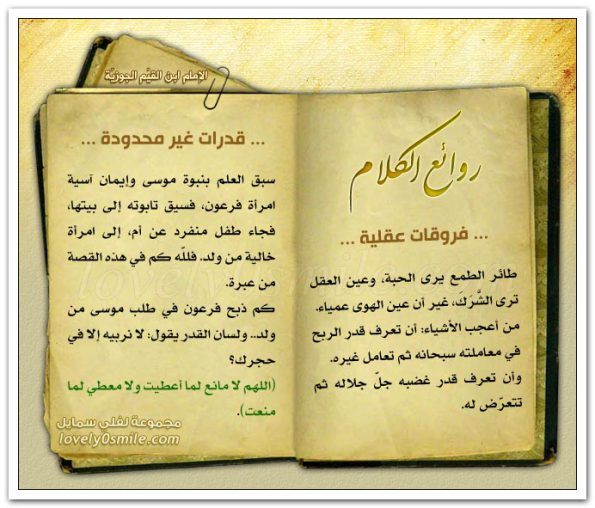 الإمام ابن القيّم الجوزيّة
روائع الكلام
... فروقات عقلية ...
طائر الطمع يرى الحبة، وعين العقل
ترى الشَّرَكَ، غير أن عين الهوى عمياء.
من أعجب الأشياء: أن تعرف قدر الربح
في معاملته سبحانه ثم تعامل غيره.
وأن تعرف قدر غضبه جلّ جلاله ثم
تتعرّض له.
... قدرات غير محدودة ...
سبق العلم بنبوة موسى وإيمان آسية
امرأة فرعون، فسيق تابوته إلى بيتها،
فجاء طفل منفرد عن أم، إلى امرأة
خالية من ولد. فللّه كم في هذه القصة
من عبرة.
كم ذبح فرعون في طلب موسى من
ولد.. ولسان القدر يقول: لا نربيه إلا في
حجرك؟
(اللهم لا مانع لما أعطيت ولا معطي لما
منعت).
مجموعة لفلي سمايل
lovely0smile.com